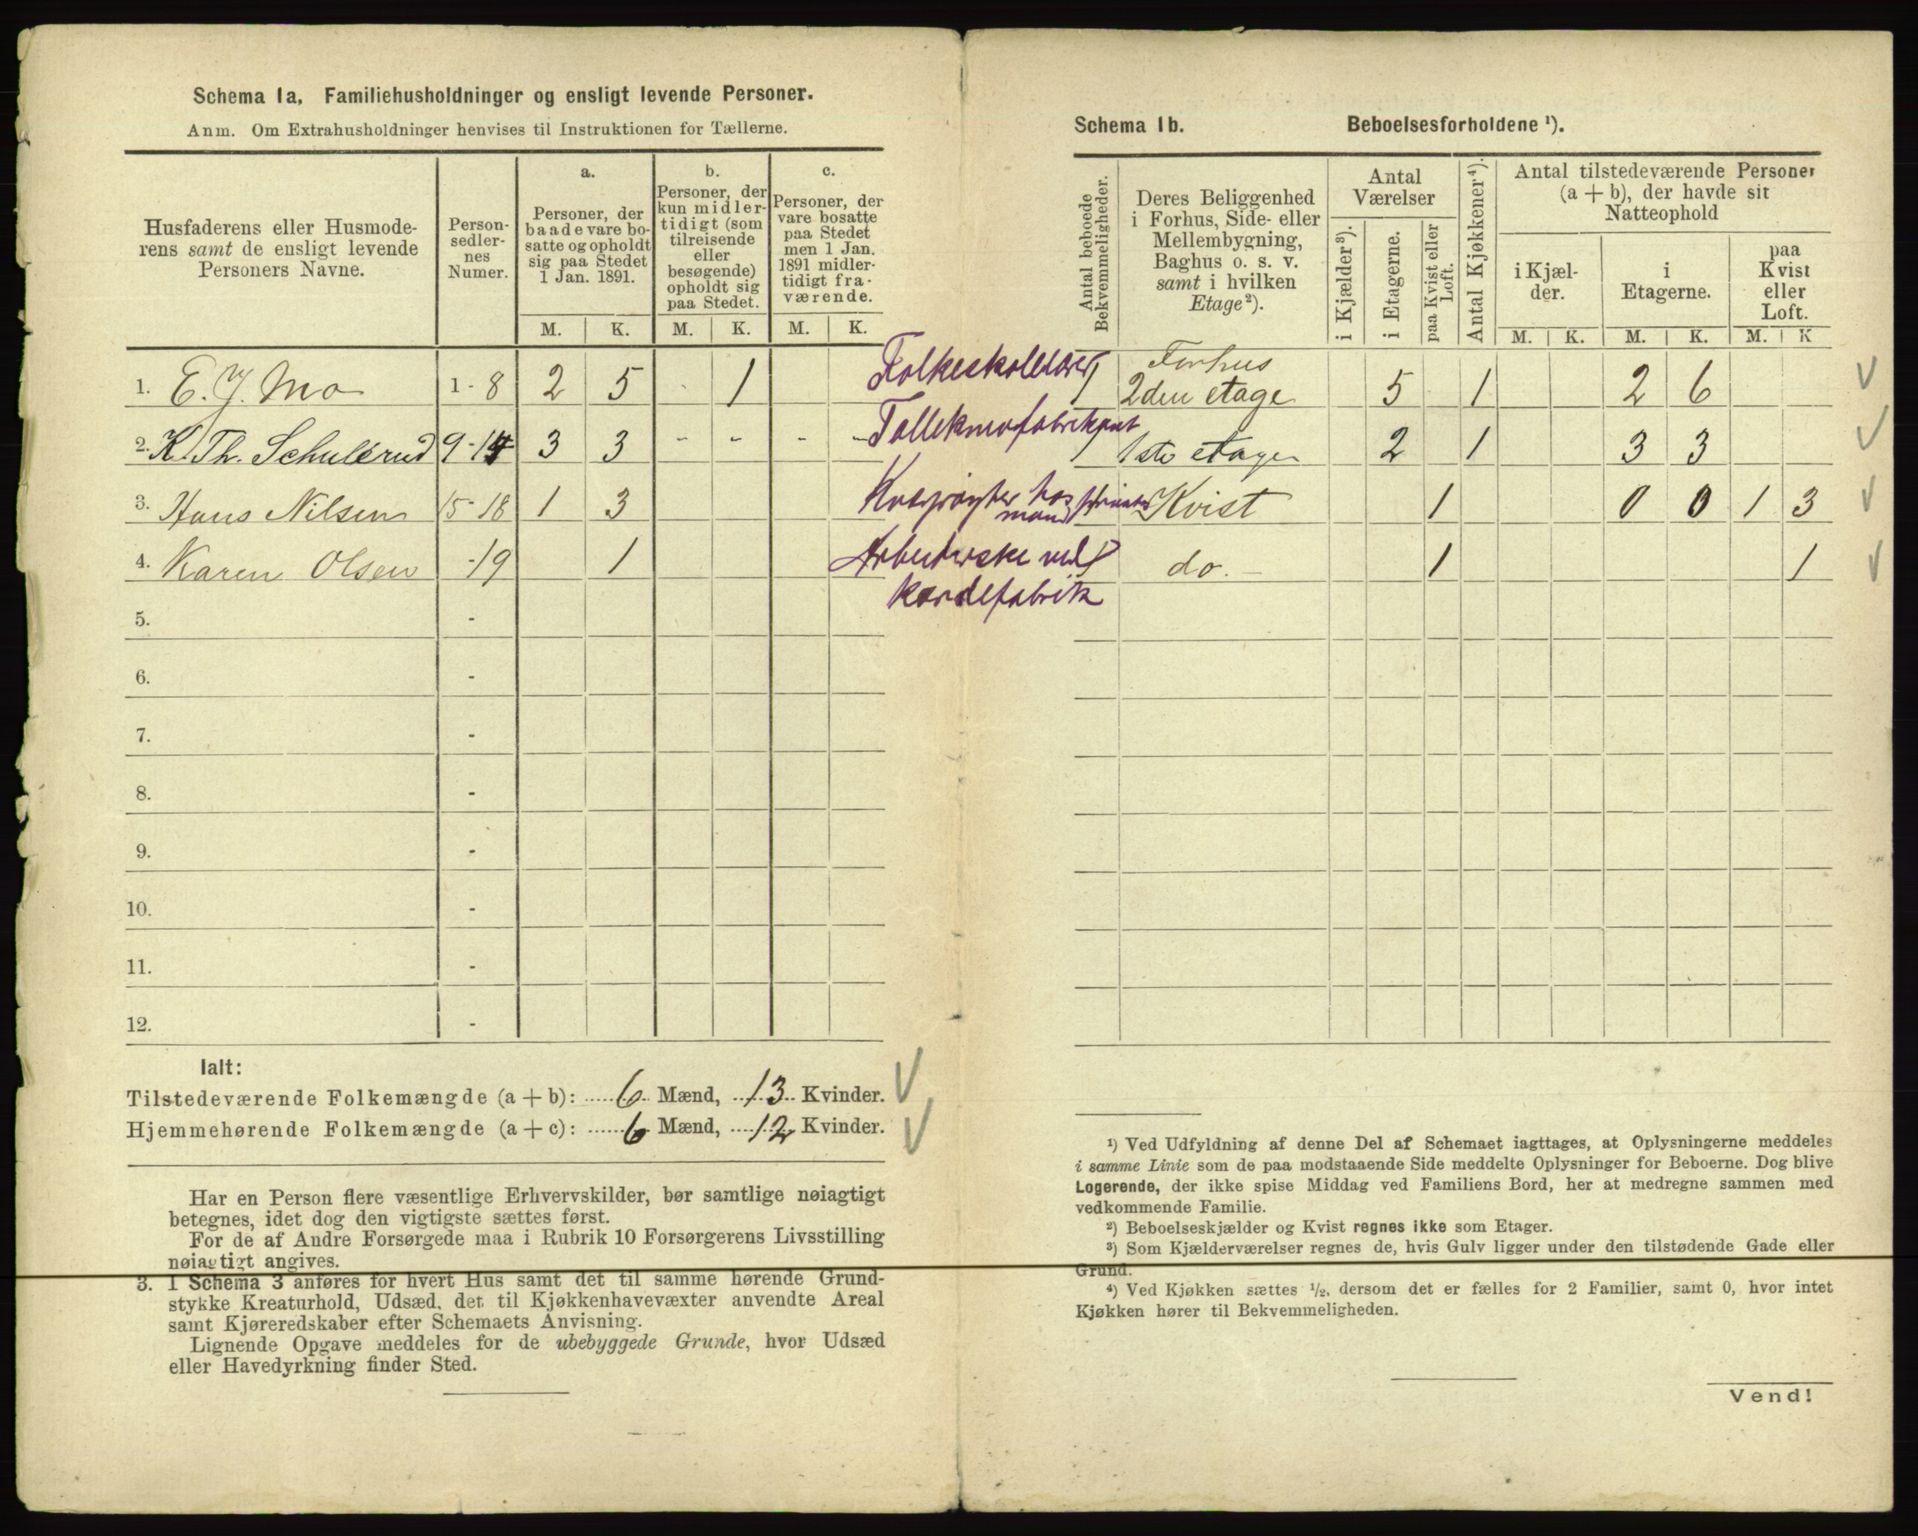 Schema 1a, Familiehusholdninger og ensligt levende Personer.
Anm. Om Extrahusholdninger henvises til Instruktionen for Tællerne.
Husfaderens eller Husmoderens samt de ensligt levende Personers Navne.
Personsedlernes Numer.
a.
Personer, der baade vare bosatte og opholdt sig paa Stedet 1 Jan. 1891.
b.
Personer, der kun midlertidigt (som tilreisende eller besøgende) opholdt sig paa Stedet.
c.
Personer, der vare bosatte paa Stedet men 1 Jan. 1891 midlertidigt fraværende.
M. K. M. K. M. K.
1. E. J. Mo 1-8 2 5 - 1 Folkeskolelærer
2. K. Th. Schulerud 9-14 3 3 - - - -
3. Hans Nilsen 15-18 1 3
4. Karen Olsen -19 1 Arbeiderske ved
kardefabrik
5. -
6. -
7. -
8. -
9. -
10. -
11. -
12. -
Ialt:
Tilstedeværende Folkemængde (a + b): 6 Mænd, 13 Kvinder.
Hjemmehørende Folkemængde (a + c): 6 Mænd, 12 Kvinder.
Har en Person flere væsentlige Erhvervskilder, bør samtlige nøiagtigt
betegnes, idet dog den vigtigste sættes først.
For de af Andre Forsørgede maa i Rubrik 10 Forsørgerens Livsstilling
nøiagtigt angives.
3. I Schema 3 anføres for hvert Hus samt det til samme hørende Grund-
stykke Kreaturhold, Udsæd, det til Kjøkkenhavevæxter anvendte Areal
samt Kjøreredskaber efter Schemaets Anvisning.
Lignende Opgave meddeles for de ubebyggede Grunde, hvor Udsæd
eller Havedyrkning finder Sted.
Schema 1b. Beboelsesforholdene ¹).
Antal beboede Bekvemmeligheder.
Deres Beliggenhed i Forhus, Side- eller Mellembygning, Baghus o. s. v. samt i hvilken Etage²).
Antal Værelser
i Kjælder³).
i Etagerne.
paa Kvist eller Loft.
Antal Kjøkkener⁴).
Antal tilstedeværende Personer (a + b), der havde sit Natteophold
i Kjælder.
i Etagerne.
paa Kvist eller Loft.
M. K. M. K. M. K
1 Forhus
2den etage 5 1 2 6
1 1ste etage 2 1 3 3
Kvist 1 0 0 1 3
1 do. - 1 1
¹) Ved Udfyldning af denne Del af Schemaet iagttages, at Oplysningerne meddeles
i samme Linie som de paa modstaaende Side meddelte Oplysninger for Beboerne. Dog blive
Logerende, der ikke spise Middag ved Familiens Bord, her at medregne sammen med
vedkommende Familie.
²) Beboelseskjælder og Kvist regnes ikke som Etager.
³) Som Kjælderværelser regnes de, hvis Gulv ligger under den tilstødende Gade eller
Grund.
⁴) Ved Kjøkken sættes ½, dersom det er fælles for 2 Familier, samt 0, hvor intet
Kjøkken hører til Bekvemmeligheden.
Vend!